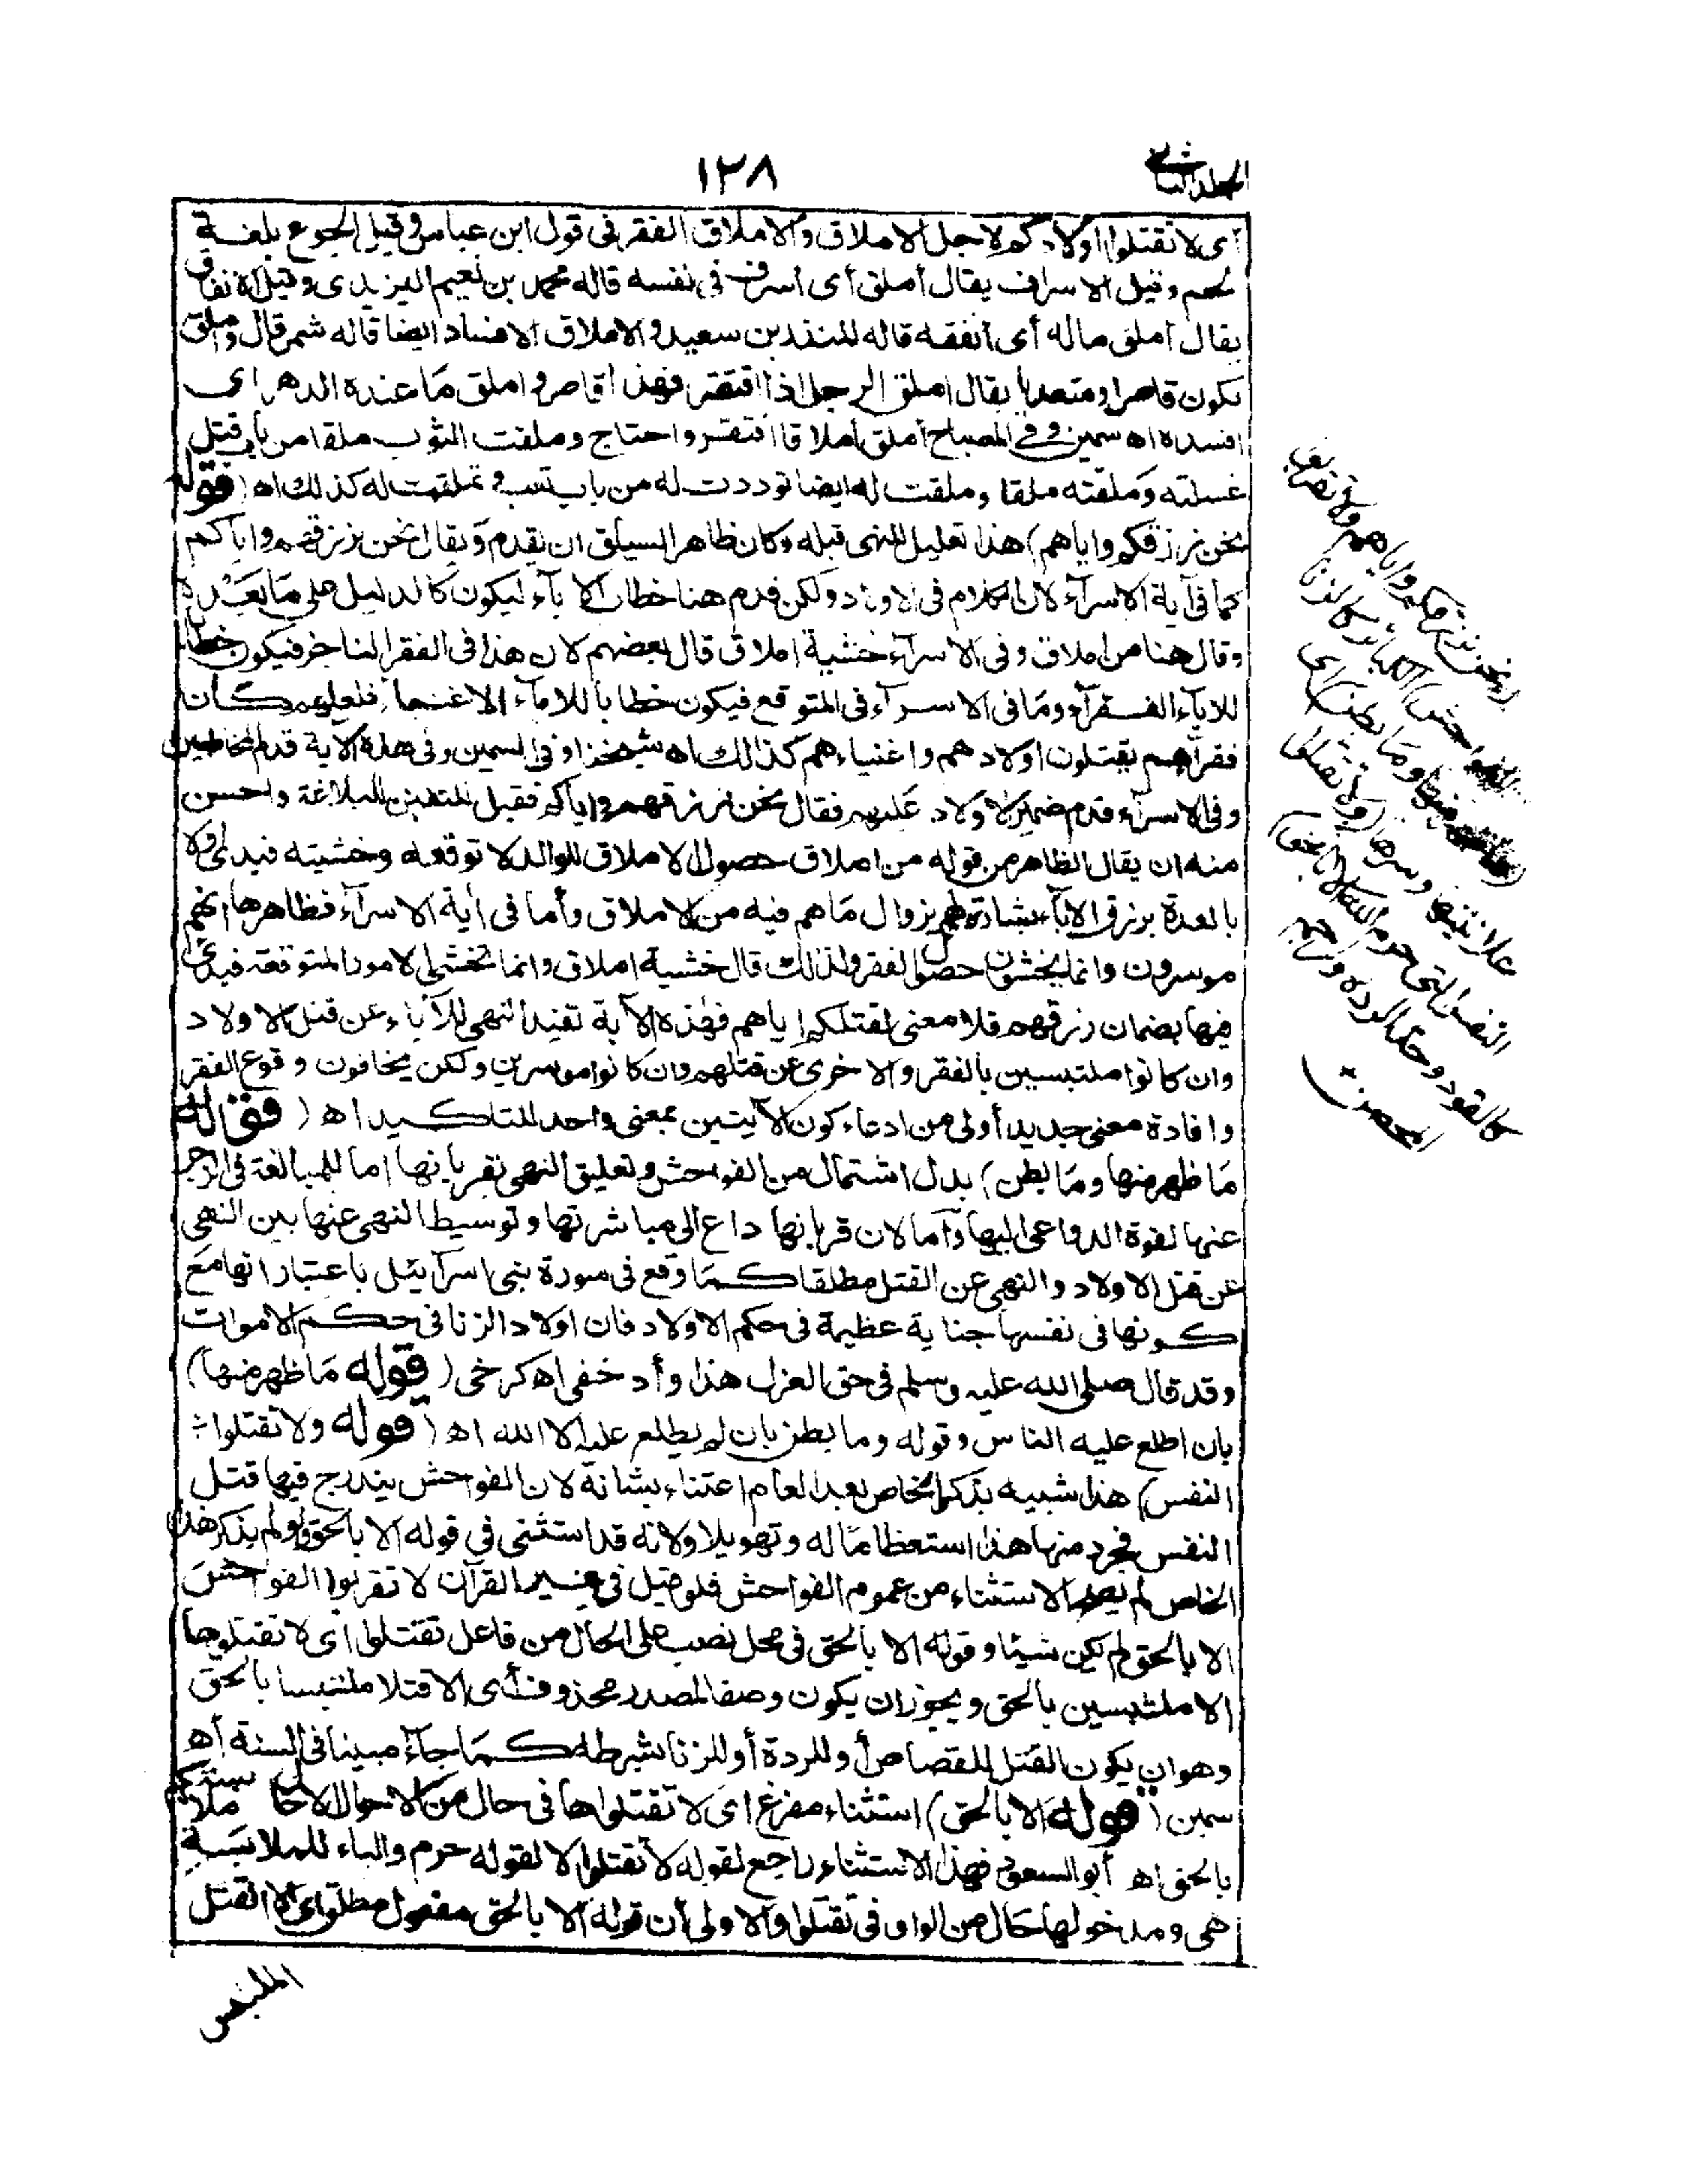 المجلد الثاني
١٢٨
أى لا تقتلوا اولادكم لاجل الاملاق والاملاق الفقر فى قول ابن عباس وقيل الجوع بلغة
لخم وقيل الاسراف يقال أملق أى أسرف فى نفسه قاله محمد بن نعيم اليزيدى وقيل الانفاق
يقال أملق ماله أى أنفقه قاله المنذر بن سعيد والاملاق الافساد ايضا قاله شمر قال وأملق
يكون قاصرا ومتعديا يقال املق الرجل اذا افتقر فهذا قاصر واملق ما عنده الدهر اى
افسده اه سمين وفى المصباح أملق املاقا افتقر واحتاج وملقت الثوب ملقا من باب قتل
غسلته وملقته ملقا وملقت له ايضا توددت له من باب تعب وتملقت له كذلك اه (قوله
نحن نرزقكم واياهم) هذا تعليل للنهى قبله وكان ظاهر السياق ان يقدم ويقال نحن نرزقهم واياكم
كما فى آية الاسرآء لان الكلام فى الاولاد ولكن قدم هنا خطاب الآباء ليكون كالدليل على ما بعده
وقال هنا من املاق وفى الاسرآء خشية املاق قال بعضهم لان هذا فى الفقر الناجز فيكون خطابا
للآباء الفقرآء وما فى الاسرآء فى المتوقع فيكون خطابا للآباء الاغنياء فلعلهم كان
فقرآهم يقتلون اولادهم واغنياءهم كذلك اه شيخنا وفى السمين وفى هذه الآية قدم المخاطبين
وفى الاسرآء قدم ضمير الاولاد عليهم فقال نحن نرزقهم واياكم فقيل للتفنن للبلاغة واحسن
منه ان يقال الظاهر من قوله من املاق حصول الاملاق للوالد لا توقعه وخشيته فبدئ اولا
بالعدة برزق الآباء بشارة لهم بزوال ما هم فيه من الاملاق وأما فى آية الاسرآء فظاهرها انهم
موسرون وانما يخشون حصول الفقر ولذلك قال خشية املاق وانما تخشى الامور المتوقعة فبدئ
فيها بضمان رزقهم فلا معنى لقتلكم اياهم فهذه الآية تفيد النهى للآباء عن قتل الاولاد
وان كانوا ملتبسين بالفقر والاخرى عن قتلهم وان كانوا موسرين ولكن يخافون وقوع الفقر
وافادة معنى جديد أولى من ادعاء كون الآيتين بمعنى واحد للتاكيد اه (قوله
ما ظهر منها وما بطن) بدل اشتمال من الفواحش وتعليق النهى بقربانها اما للمبالغة فى الزجر
عنها لقوة الدواعى اليها وأما لان قربانها داع الى مباشرتها وتوسيط النهى عنها بين النهى
عن قتل الاولاد والنهى عن القتل مطلقا كما وقع فى سورة بنى اسرآئيل باعتبار انها مع
كونها فى نفسها جناية عظيمة فى حكم الاولاد فان اولاد الزنا فى حكم الاموات
وقد قال صلى الله عليه وسلم فى حق العزل هذا وأد خفى اه كرخى (قوله ما ظهر منها)
بان اطلع عليه الناس وقوله وما بطن بان لم يطلع عليه الا الله اه (قوله ولا تقتلوا
النفس) هذا شبيه بذكر الخاص بعد العام اعتناء بشانه لان الفواحش يندرج فيها قتل
النفس فجرد منها هذا استعظاما له وتهويلا ولانه قد استثنى فى قوله الا بالحق ولو لم يذكر هذا
الخاص لم يصح الاستثناء من عموم الفواحش فلو قيل فى غير القرآن لا تقربوا الفواحش
الا بالحق لم يكن شيئا وقوله الا بالحق فى محل نصب على الحال من فاعل تقتلوا أى لا تقتلوها
الا ملتبسين بالحق ويجوز ان يكون وصفا لمصدر محذوف أى الا قتلا ملتبسا بالحق
وهو ان يكون القتل للقصاص أو للردة أو للزنا بشرطه كما جآء مبينا فى السنة اه
سمين (قوله الا بالحق) استثناء مفرغ اى لا تقتلوها فى حال من الاحوال الا حال ملابستكم
بالحق اه أبو السعود فهذا الاستثناء راجع لقوله لا تقتلوا لا لقوله حرم والباء للملابسة
هى ومدخولها حال من الواو فى تقتلوا والاولى أن قوله الا بالحق مفعول مطلق اى الا القتل
الملتبس
(نحن نرزقكم واياهم ولا تقربوا
الفواحش) الكبائر كالزنا
(ما ظهر منها وما بطن) اى
علانيتها وسرها (ولا تقتلوا
النفس التى حرم الله الا بالحق)
كالقود وحد الردة ورجم
المحصن